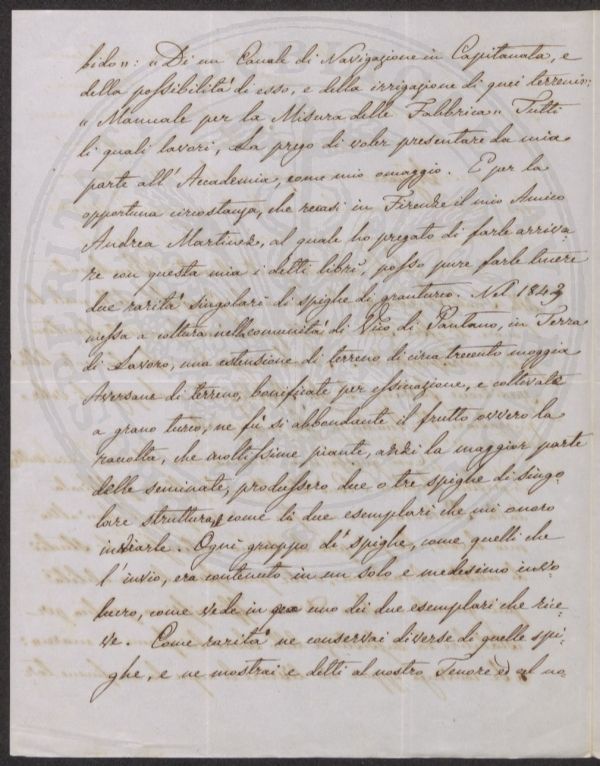 bido»: «Di un Canale di Navigazione in Capitanata, e
della possibilità di esso, e della irrigazione di quei terreni»:
«Manuale per la Misura delle Fabbriche» Tutti
li quali lavori, La prego di voler presentare da mia
parte all'Accademia, come mio omaggio. E per la
opportuna circostanza, che recasi in Firenze il mio Amico
Andrea Martinez, al quale ho pregato di farle arriva-
re con questa mia i detti libri, posso pure farle tenere
due rarità singolari di spighe di granturco. Nel 1843
messa a coltura nell comunità di Vico di Pantano, in Terra
di Lavoro, una estensione di terreno di circa trecento moggia
Aversane di terreno, bonificate per essiccazione, e coltivate
a grano turco, ne fù si abbondante il frutto ovvero la
raccolta, che moltissime piante, anzi la maggior parte
delle seminate, produssero due o tre spighe di singo-
lare struttura, come li due esemplari che mi onoro
inviarle. Ogni gruppo di spighe, come quelli che
l'invio, era contenuto in un solo e medesimo invo-
lucro, come vede in uno dei due esemplari che rice-
ve. Come rarità ne conservai diverse di quelle spi-
ghe, e ne mostrai e detti al nostro Tenore ed al no-